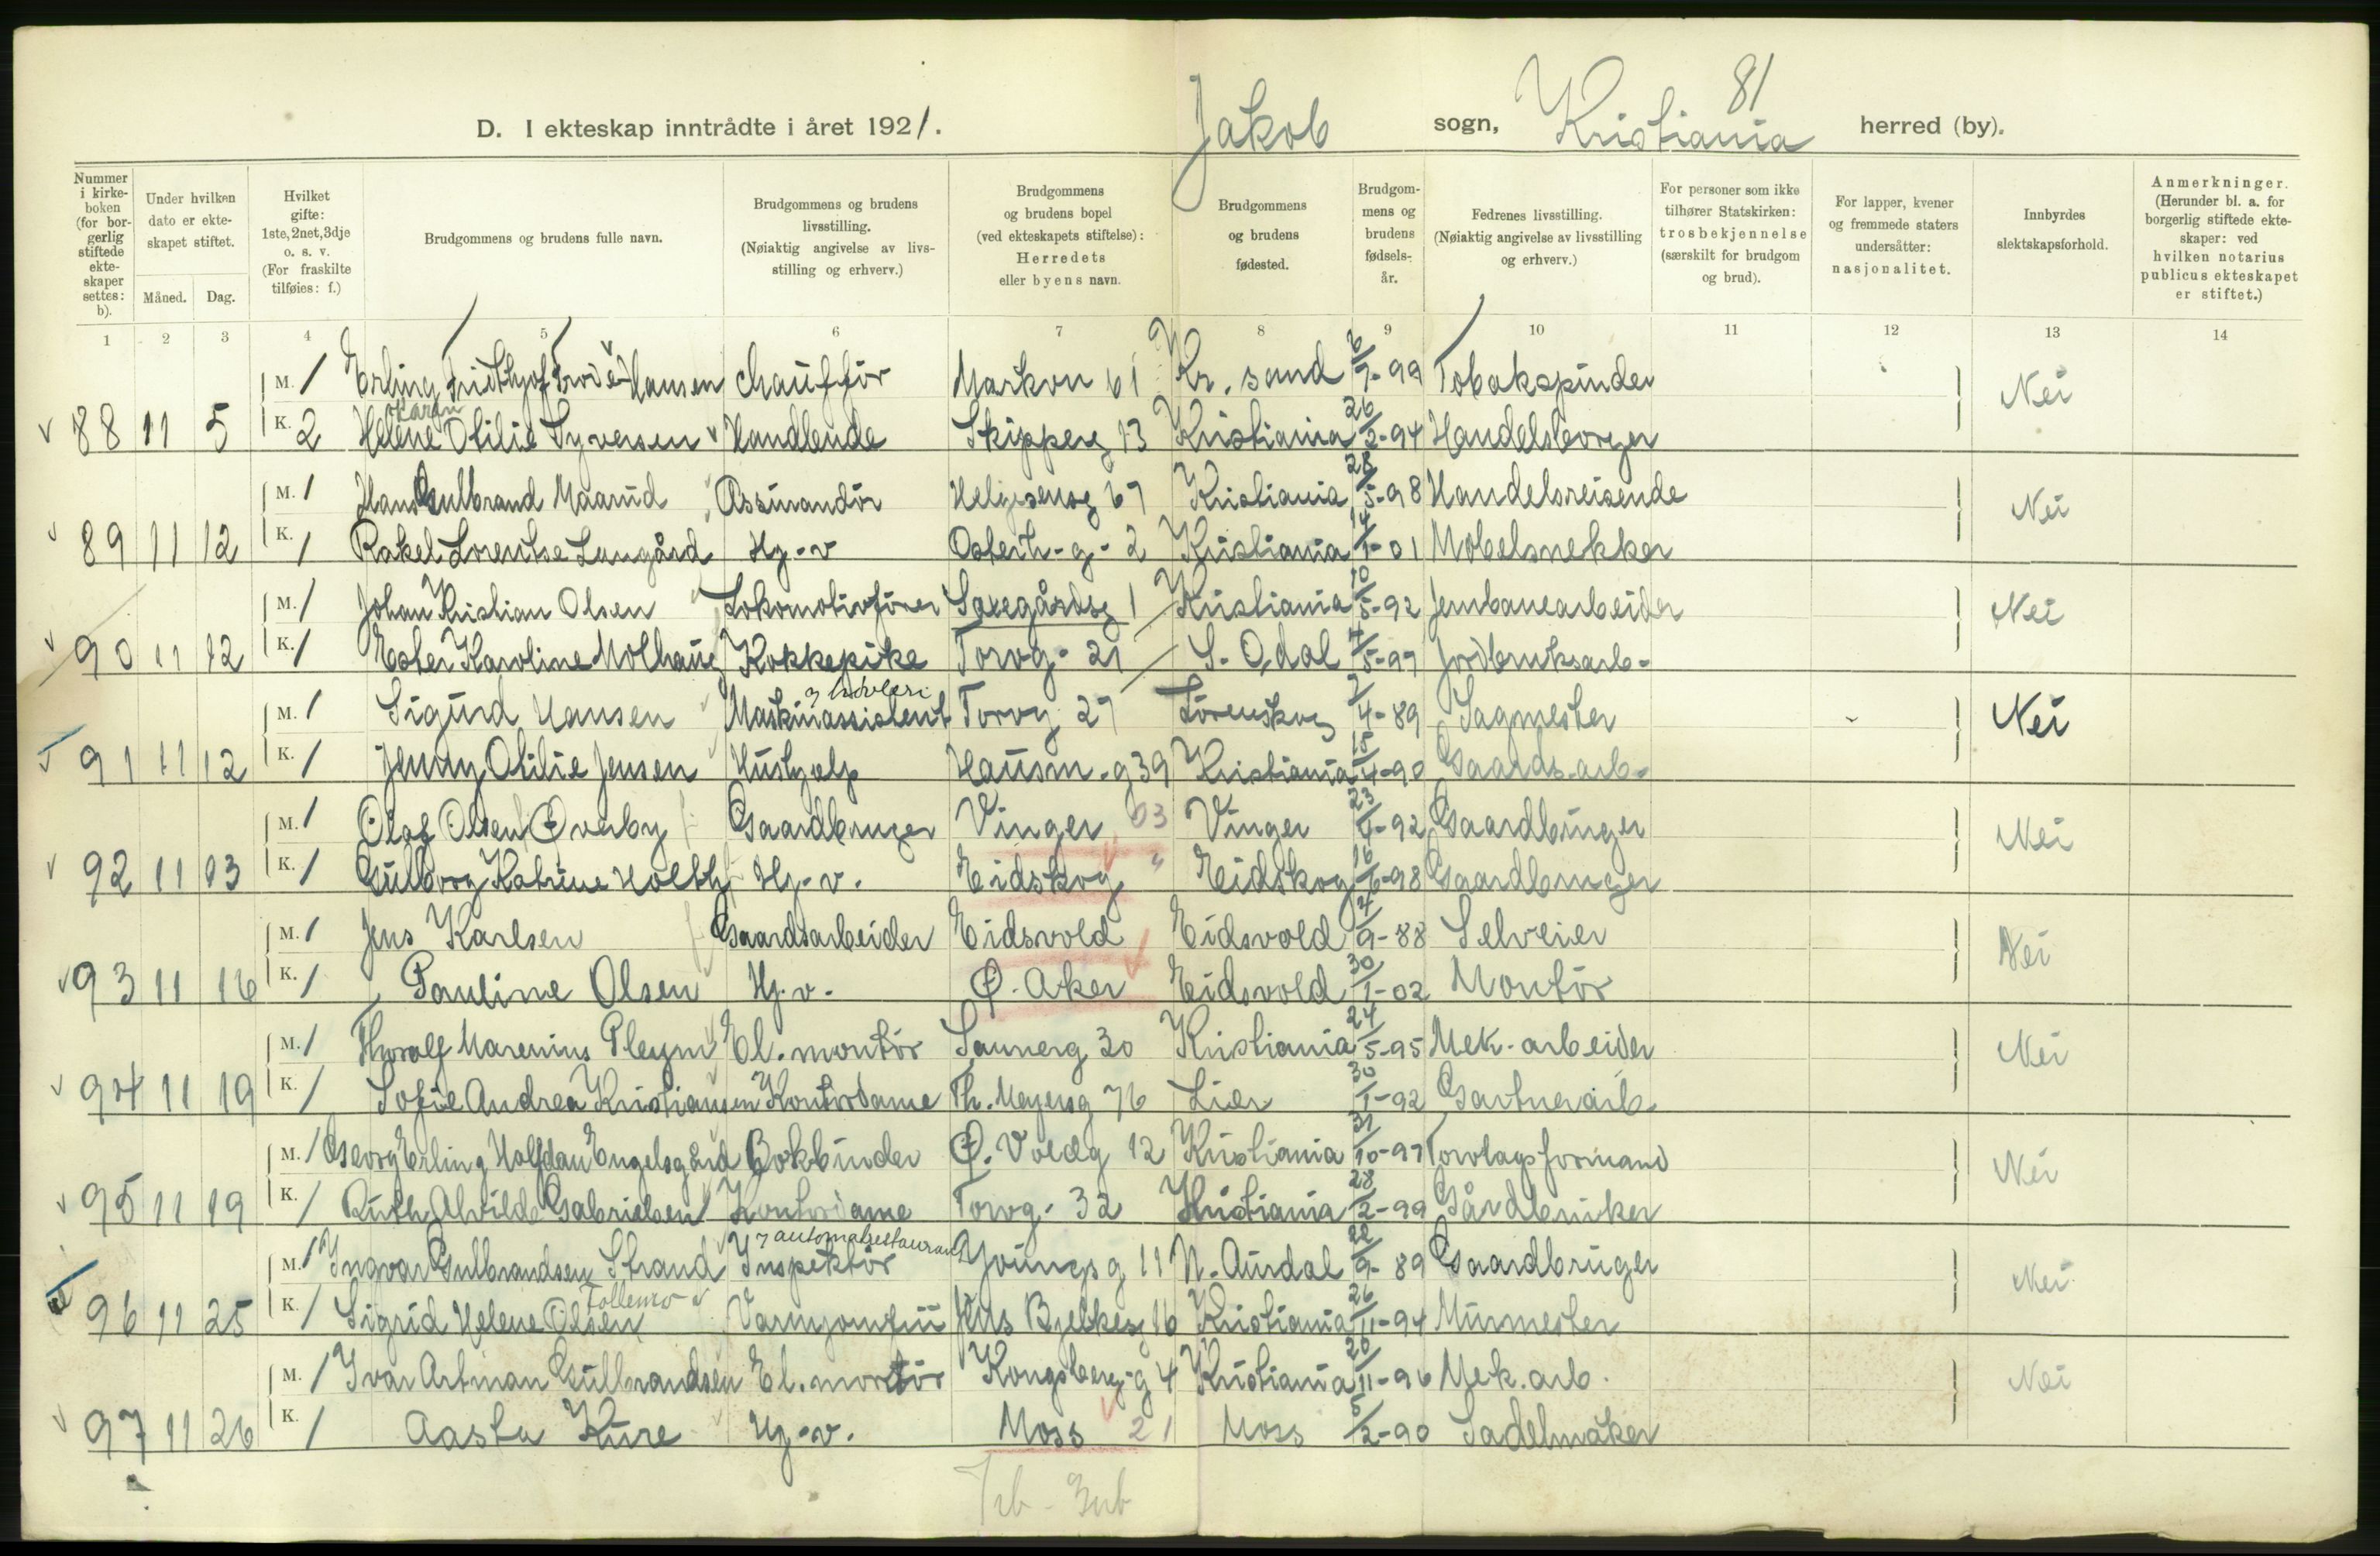 81
D. I ekteskap inntrådte i året 1921. Jakob sogn, Kristiania herred (by).
Nummer i kirkeboken (for borgerlig stiftede ekteskaper settes: b).
Under hvilken dato er ekteskapet stiftet.
Måned. Dag.
Hvilket gifte: 1ste, 2net, 3dje o. s. v. (For fraskilte tilføies: f.)
Brudgommens og brudens fulle navn.
Brudgommens og brudens livsstilling. (Nøiaktig angivelse av livsstilling og erhverv.)
Brudgommens og brudens bopel (ved ekteskapets stiftelse): Herredets eller byens navn.
Brudgommens og brudens fødested.
Brudgommens og brudens fødselsår.
Fedrenes livsstilling. (Nøiaktig angivelse av livsstilling og erhverv.)
For personer som ikke tilhører Statskirken: trosbekjennelse (særskilt for brudgom og brud).
For lapper, kvener og fremmede staters undersåtter: nasjonalitet.
Innbyrdes slektskapsforhold.
Anmerkninger. (Herunder bl. a. for borgerlig stiftede ekteskaper: ved hvilken notarius publicus ekteskapet er stiftet.)
1 2 3 4 5 6 7 8 9 10 11 12 13 14
M. 1 Erling Hansen Chauffør Markvn 61 Kr. sand 6/9-99 Tobakspinder Nei
88 11 5 K. 2 Helene Otilie Syversen Handlende Skipperg 13 Kristiania 26/2-94 Handelsborger
M. 1 Hans Gulbrand Maarud Assurandør Helgesensg 67 Kristiania 28/5-98 Handelsreisende Nei
89 11 12 K. 1 Rakel Lorentse Langård Hj.-v Osterh-g-2 Kristiania 14/1-01 Møbelsnekker
M. 1 Johan Kristian Olsen Lokomotivfører Saxegårdsg 1 Kristiania 10/5-92 Jernbanearbeider Nei
90 11 12 K. 1 Ester Karoline Molhaug Kokkepike Torvg-21 S. Odal 4/5-97 Jordbruksarb-
M. 1 Sigurd Hansen Maskinassistent Torvg 27 Lørenskog 7/4-89 Sagmester Nei
91 11 12 K. 1 Jenny Otilie Jensen Hushjælp Hausm-g 39 Kristiania 18/4-90 Gaards-arb-
M. 1 Olaf Olsen Øverby Gaardbruger Vinger 03 Vinger 23/4-92 Gaardbruger Nei
92 11 13 K. 1 Gulborg Katrine Holth Hj.-v. Eidskog " Eidskog 16/6-98 Gaardbruger
M. 1 Jens Karlsen Gaardsarbeider Eidsvold Eidsvold 4/9-88 Selveier Nei
93 11 16 K. 1 Pauline Olsen Hj.v. Ø. Aker Eidsvold 30/1-02 Montør
M. 1 Thoralf Marenius Pleym El. montør Sannerg 20 Kristiania 24/5-95 Mek. arbeider Nei
94 11 19 K. 1 Sofie Andrea Kristiansen Kontordame Th. Meyersg 76 Lier 30/1-92 Gartnerarb.
M. 1 Georg Erling Halfdan Engelsgård Bokbinder Ø. Voldg 12 Kristiania 31/10-97 Torvlagsformand Nei
95 11 19 K. 1 Ruth Alvilde Gabrielsen Kontordame Torvg-32 Kristiania 28/2-99 Gårdbruker
i automatrestaurant
M. 1 Ingvar Gulbrandsen Strand Inspektør Youngsg 11 N. Aurdal 22/9-89 Gaardbruger Nei
96 11 25 K. 1 Sigrid Helene Olsen Varmjomfru Jens Bjelkesg 16 Kristiania 26/11-94 Murmester
M. 1 Ivar Artman Gulbrandsen El. montør Kongsberg-g 4 Kristiania 20/11-96 Mek. arb. Nei
97 11 26 K. 1 Aasta Kure Hj.-v. Moss 21 Moss 5/2-90 Sadelmaker